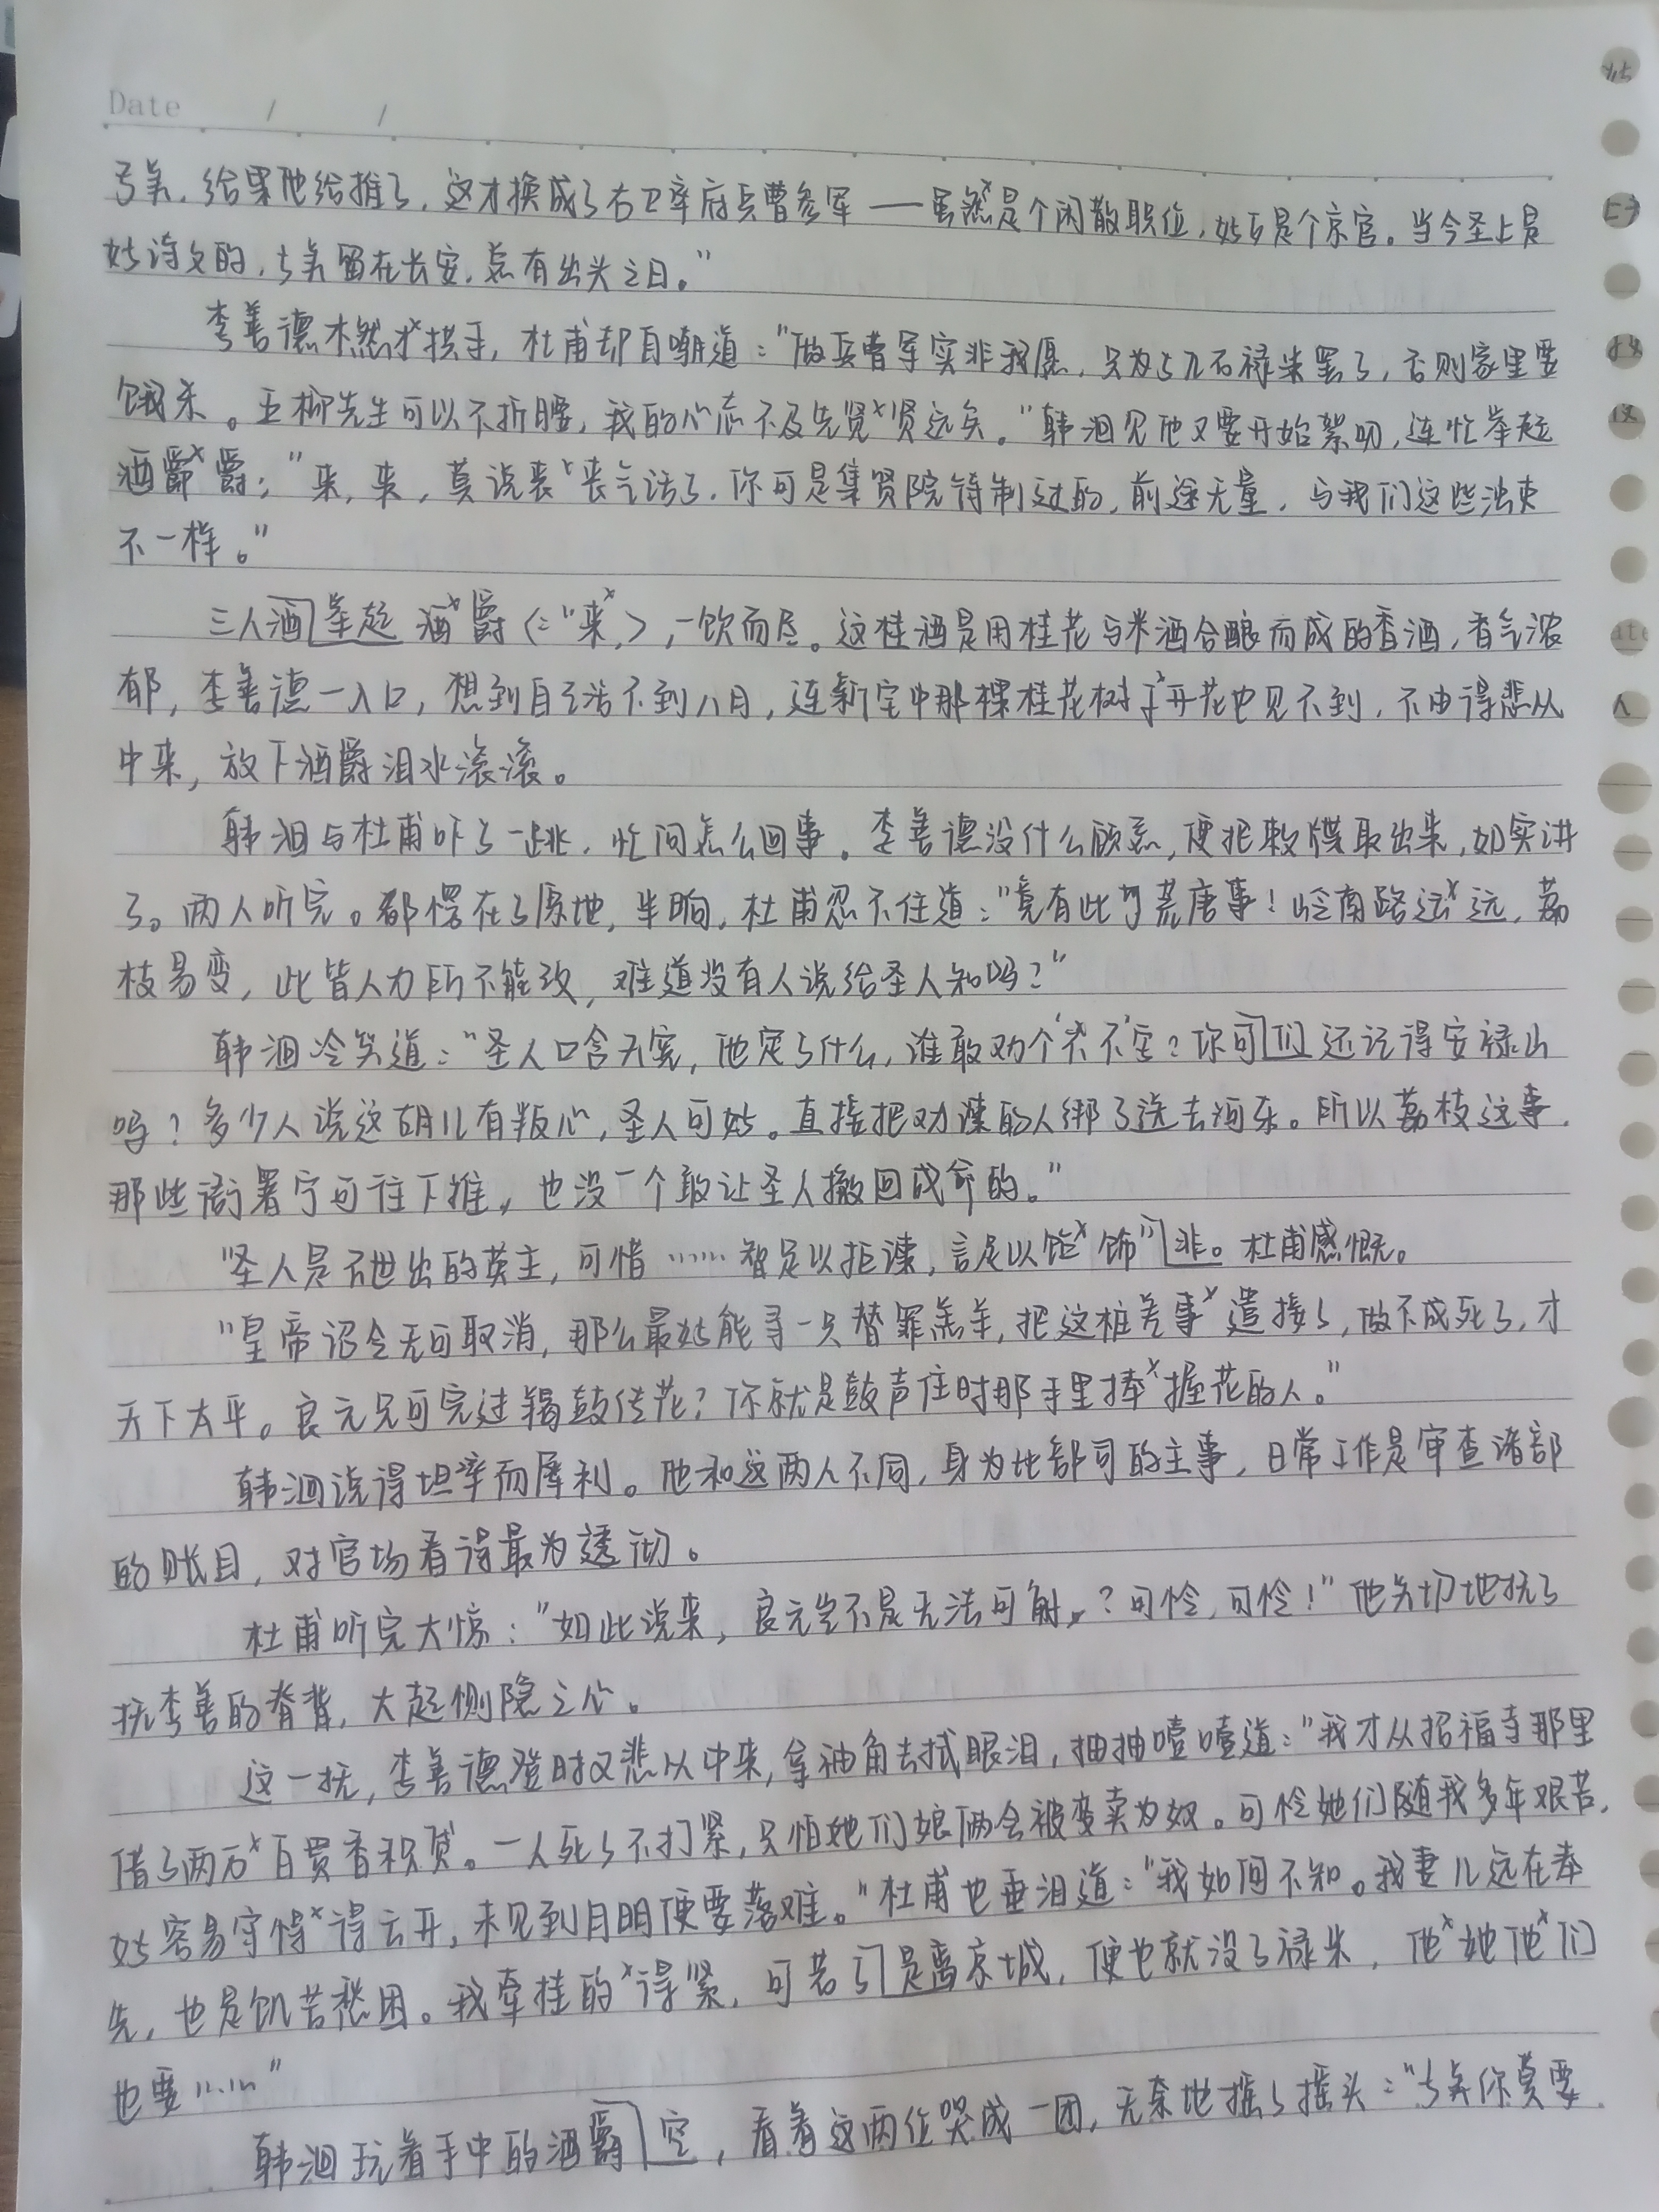 Date / /
与弟，给果他给推了，这才换成了右卫率府兵曹参军——虽然是个闲散职位，好歹是个京官。当今圣上是
好诗文的，与弟留在长安，总有出头之日。"
李善德木然才拱手，杜甫却自嘲道："做兵曹军实非我愿，只为与几石禄米罢了，否则家里要
饿杀。五柳先生可以不折腰，我的心态不及先贤贤远矣。"韩洄见他又要开始絮叨，连忙举起
酒爵爵："来，来，莫说丧丧气话了，你可是集贤院待制过的，前途无量，与我们这些浊吏
不一样。"
三人酒举起酒爵（："来，），一饮而尽。这桂酒是用桂花与米酒合酿而成的香酒，香气浓
郁，李善德一入口，想到自己活不到八月，连新宅中那棵桂花树开花也见不到，不由得悲从
中来，放下酒爵泪水滚滚。
韩洄与杜甫吓了一跳，忙问怎么回事。李善德没什么顾忌，便把敕牒取出来，如实讲
了。两人听完。都愣在了原地，半晌，杜甫忍不住道："竟有此等荒唐事！岭南路远远，荔
枝易变，此皆人力所不能改，难道没有人说给圣人知吗？"
韩洄冷笑道："圣人口含天宪，他定了什么，谁敢劝个不不字？你可们还记得安禄山
吗？多少人说这胡儿有叛心，圣人可好。直接把劝谏的人绑了送去河东。所以荔枝这事，
那些衙署宁可往下推，也没一个敢让圣人撤回成命的。"
"圣人是不世出的英主，可惜……智足以拒谏，言足以饰饰"非。杜甫感慨。
"皇帝诏令无可取消，那么最好能寻一只替罪羔羊，把这桩差事遣接了，做不成死了，才
天下太平。良元兄可完过羯鼓传花？你就是鼓声住时那手里捧握花的人。"
韩洄说得坦率而犀利。他和这两人不同，身为比部司的主事，日常工作是审查诸部
的账目，对官场看得最为透彻。
杜甫听完大惊："如此说来，良元岂不是无法可射，？可怜，可怜！"他关切地抚了
抚李善的脊背，大起恻隐之心。
这一抚，李善德登时又悲从中来，拿袖角去拭眼泪，抽抽噎噎道："我才从招福寺那里
借了两万百贯香积贷。一人死了不打紧，只怕她们娘俩会被变卖为奴。可怜她们随我多年艰苦，
好容易守得得云开，未见到月明便要落难。"杜甫也垂泪道："我如何不知。我妻儿远在奉
先，也是饥苦愁困。我牵挂的得紧，可若了是离京城，便也就没了禄米，他她他们
也要……"
韩洄玩着手中的酒爵空，看着这两位哭成一团，无奈地摇了摇头："与弟你莫要